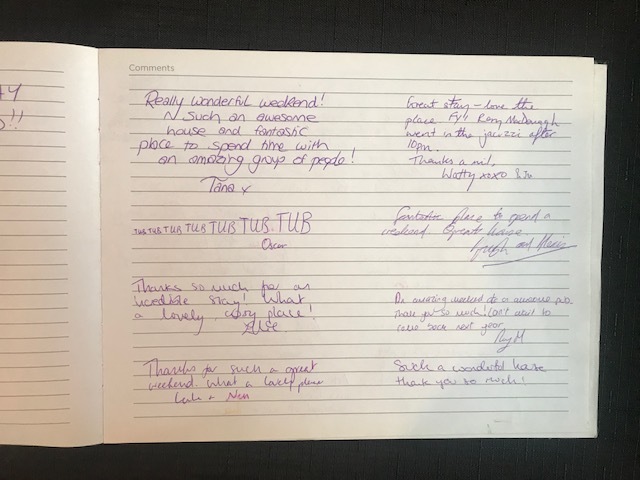 Comments
Really wonderful weekend!
~ Such an awesome
house and fantastic
place to spend time with
an amazing group of people!
Tana x
TUB TUB TUB TUB TUB TUB. TUB
Oscar
Thanks so much for an
incredible stay! What
a lovely, cosy place!
Thanks for such a great
weekend. What a lovely place
+ Ness
Great stay - love the
place FYI Rory MacDonagh
went in the jacuzzi after
10pm.
Thanks a mil,
Watty xoxo & Jo
Fantastic place to spend a
weekend. Great house.
Hugh and
An amazing weekend at a awesome
Thank you so much! Can't wait to
come back next year
Such a wonderful house
thank you so much!
!!